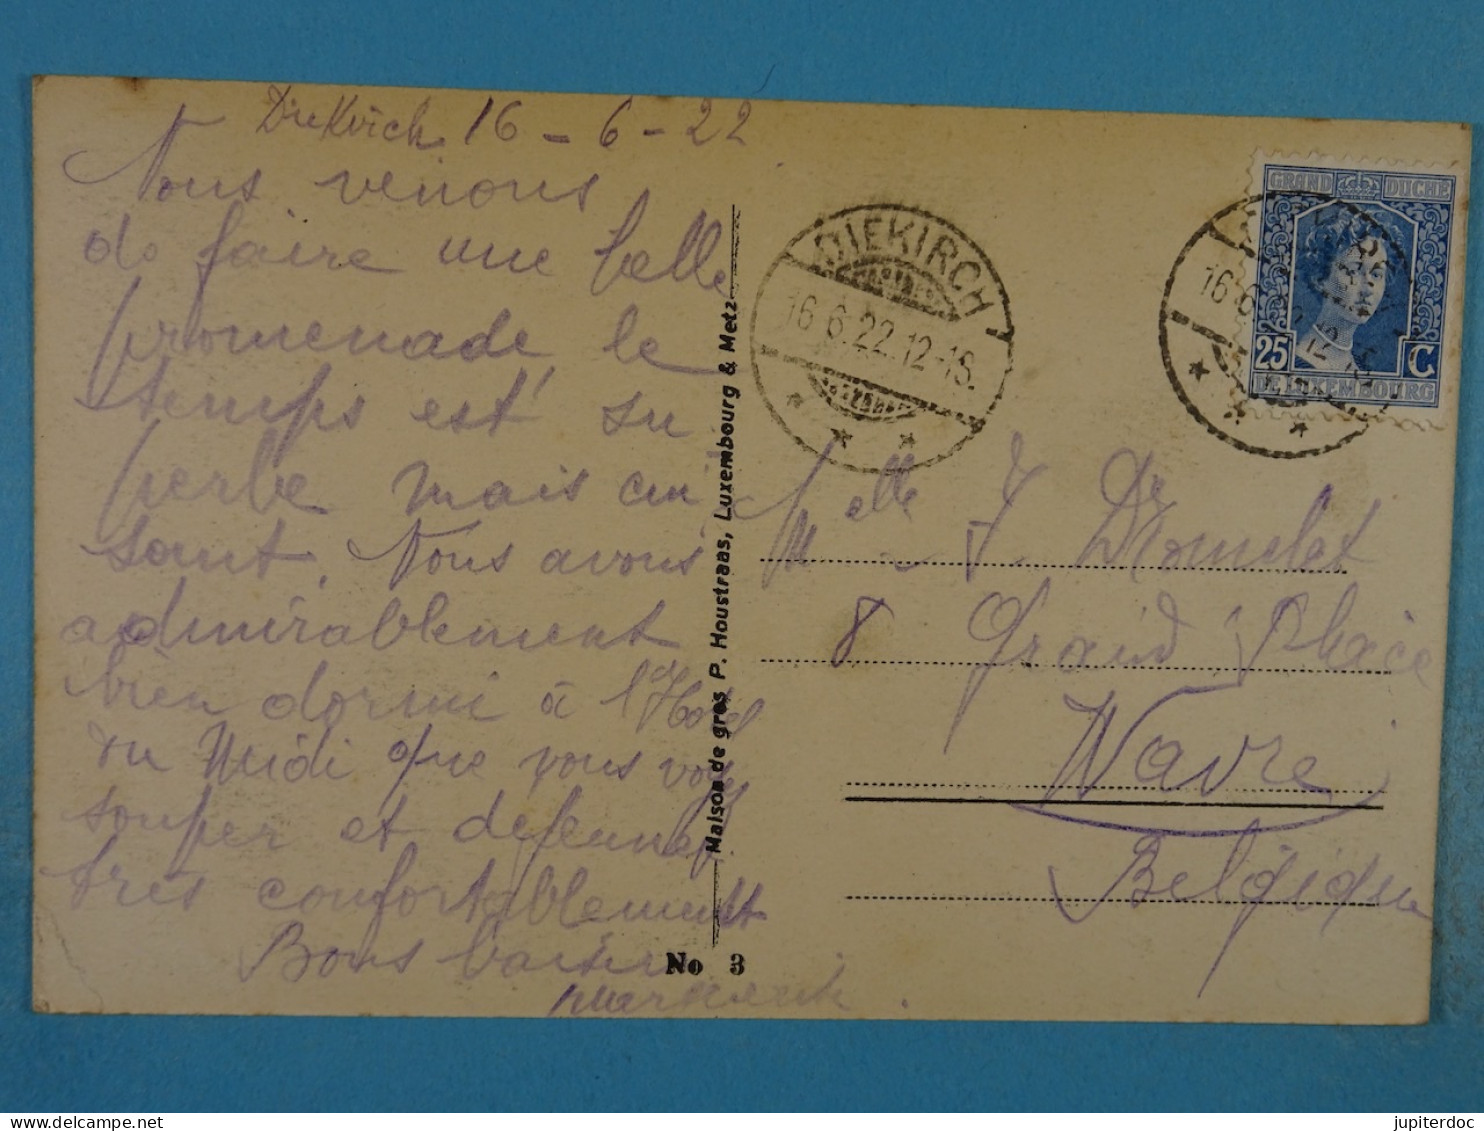 Diekirch 16-6-22
Nous venons
de faire une belle
promenade le
temps est su
perbe mais cui
sant. Nous avons
admirablement
bien dormi à l'Hotel
du Midi que vous voyez
souper et dejeuner
très confortablement
Bons baisers
Maison de gros P. Houstraas, Luxembourg & Metz
No 3
DIEKIRCH
16.6.22.12-1S.
GRAND DUCHE
25 C
DE LUXEMBOURG
DIEKIRCH
16.6.22.12-1S.
Melle J
8 Grand Place
Wavre
Belgique
jupiterdoc